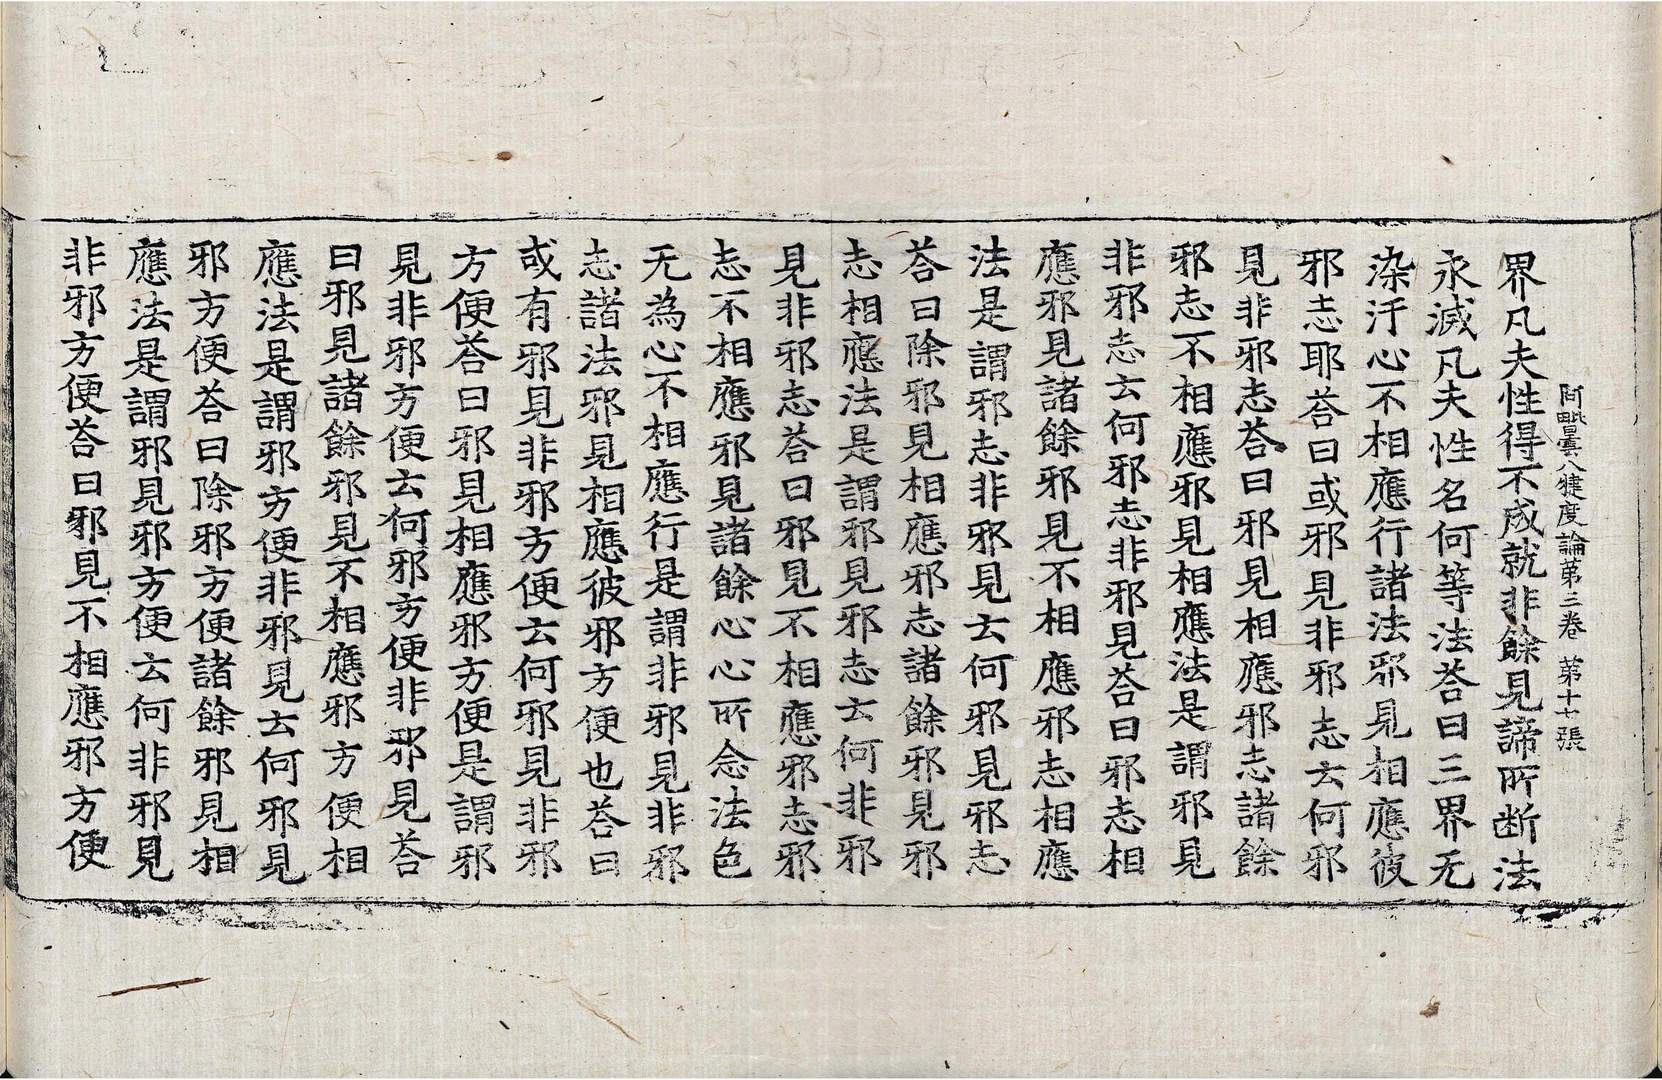 阿毗曇八犍度論第三卷　第十七張
界凡夫性得不成就非餘見諦所断法
永滅凡夫性名何等法荅曰三界无
染汙心不相應行諸法邪見相應彼
邪志耶荅曰或邪見非邪志云何邪
見非邪志荅曰邪見相應邪志諸餘
邪志不相應邪見相應法是謂邪見
非邪志云何邪志非邪見荅曰邪志相
應邪見諸餘邪見不相應邪志相應
法是謂邪志非邪見云何邪見邪志
荅曰除邪見相應邪志諸餘邪見邪
志相應法是謂邪見邪志云何非邪
見非邪志荅曰邪見不相應邪志邪
志不相應邪見諸餘心心所念法色
无為心不相應行是謂非邪見非邪
志諸法邪見相應彼邪方便也荅曰
或有邪見非邪方便云何邪見非邪
方便荅曰邪見相應邪方便是謂邪
見非邪方便云何邪方便非邪見荅
曰邪見諸餘邪見不相應邪方便相
應法是謂邪方便非邪見云何邪見
邪方便荅曰除邪方便諸餘邪見相
應法是謂邪見邪方便云何非邪見
非邪方便荅曰邪見不相應邪方便